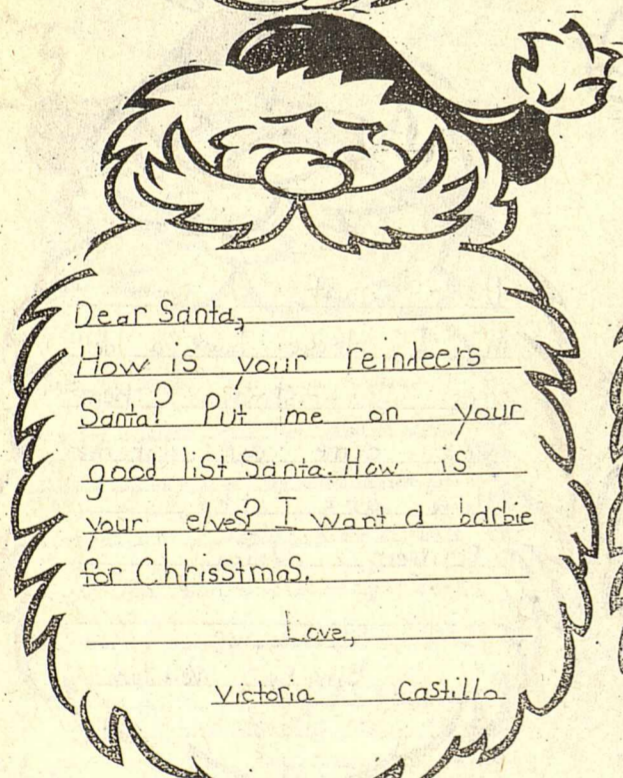 Dear Santa,
How is your reindeers
Santa? Put me on your
good list Santa. How is
your elves? I want a barbie
for Chrisstmas.
Love,
Victoria Castillo